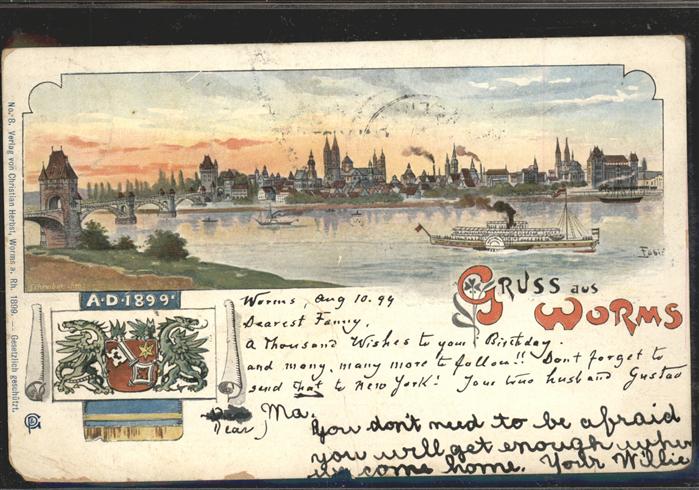 No. B. Verlag von Christian Herbst, Worms a. Rh. 1899. — Gesetzlich geschützt.
A·D·1899
GRUSS aus
WORMS
Worms, Aug 10. 99
Dearest Fanny,
A Thousand Wishes to your Birthday.
and many, many more to follow!! Dont forget to
send that to New York! Your true husband Gustav
Dear Ma.
You don't need to be afraid
you will get enough when
we come home. Your Willie